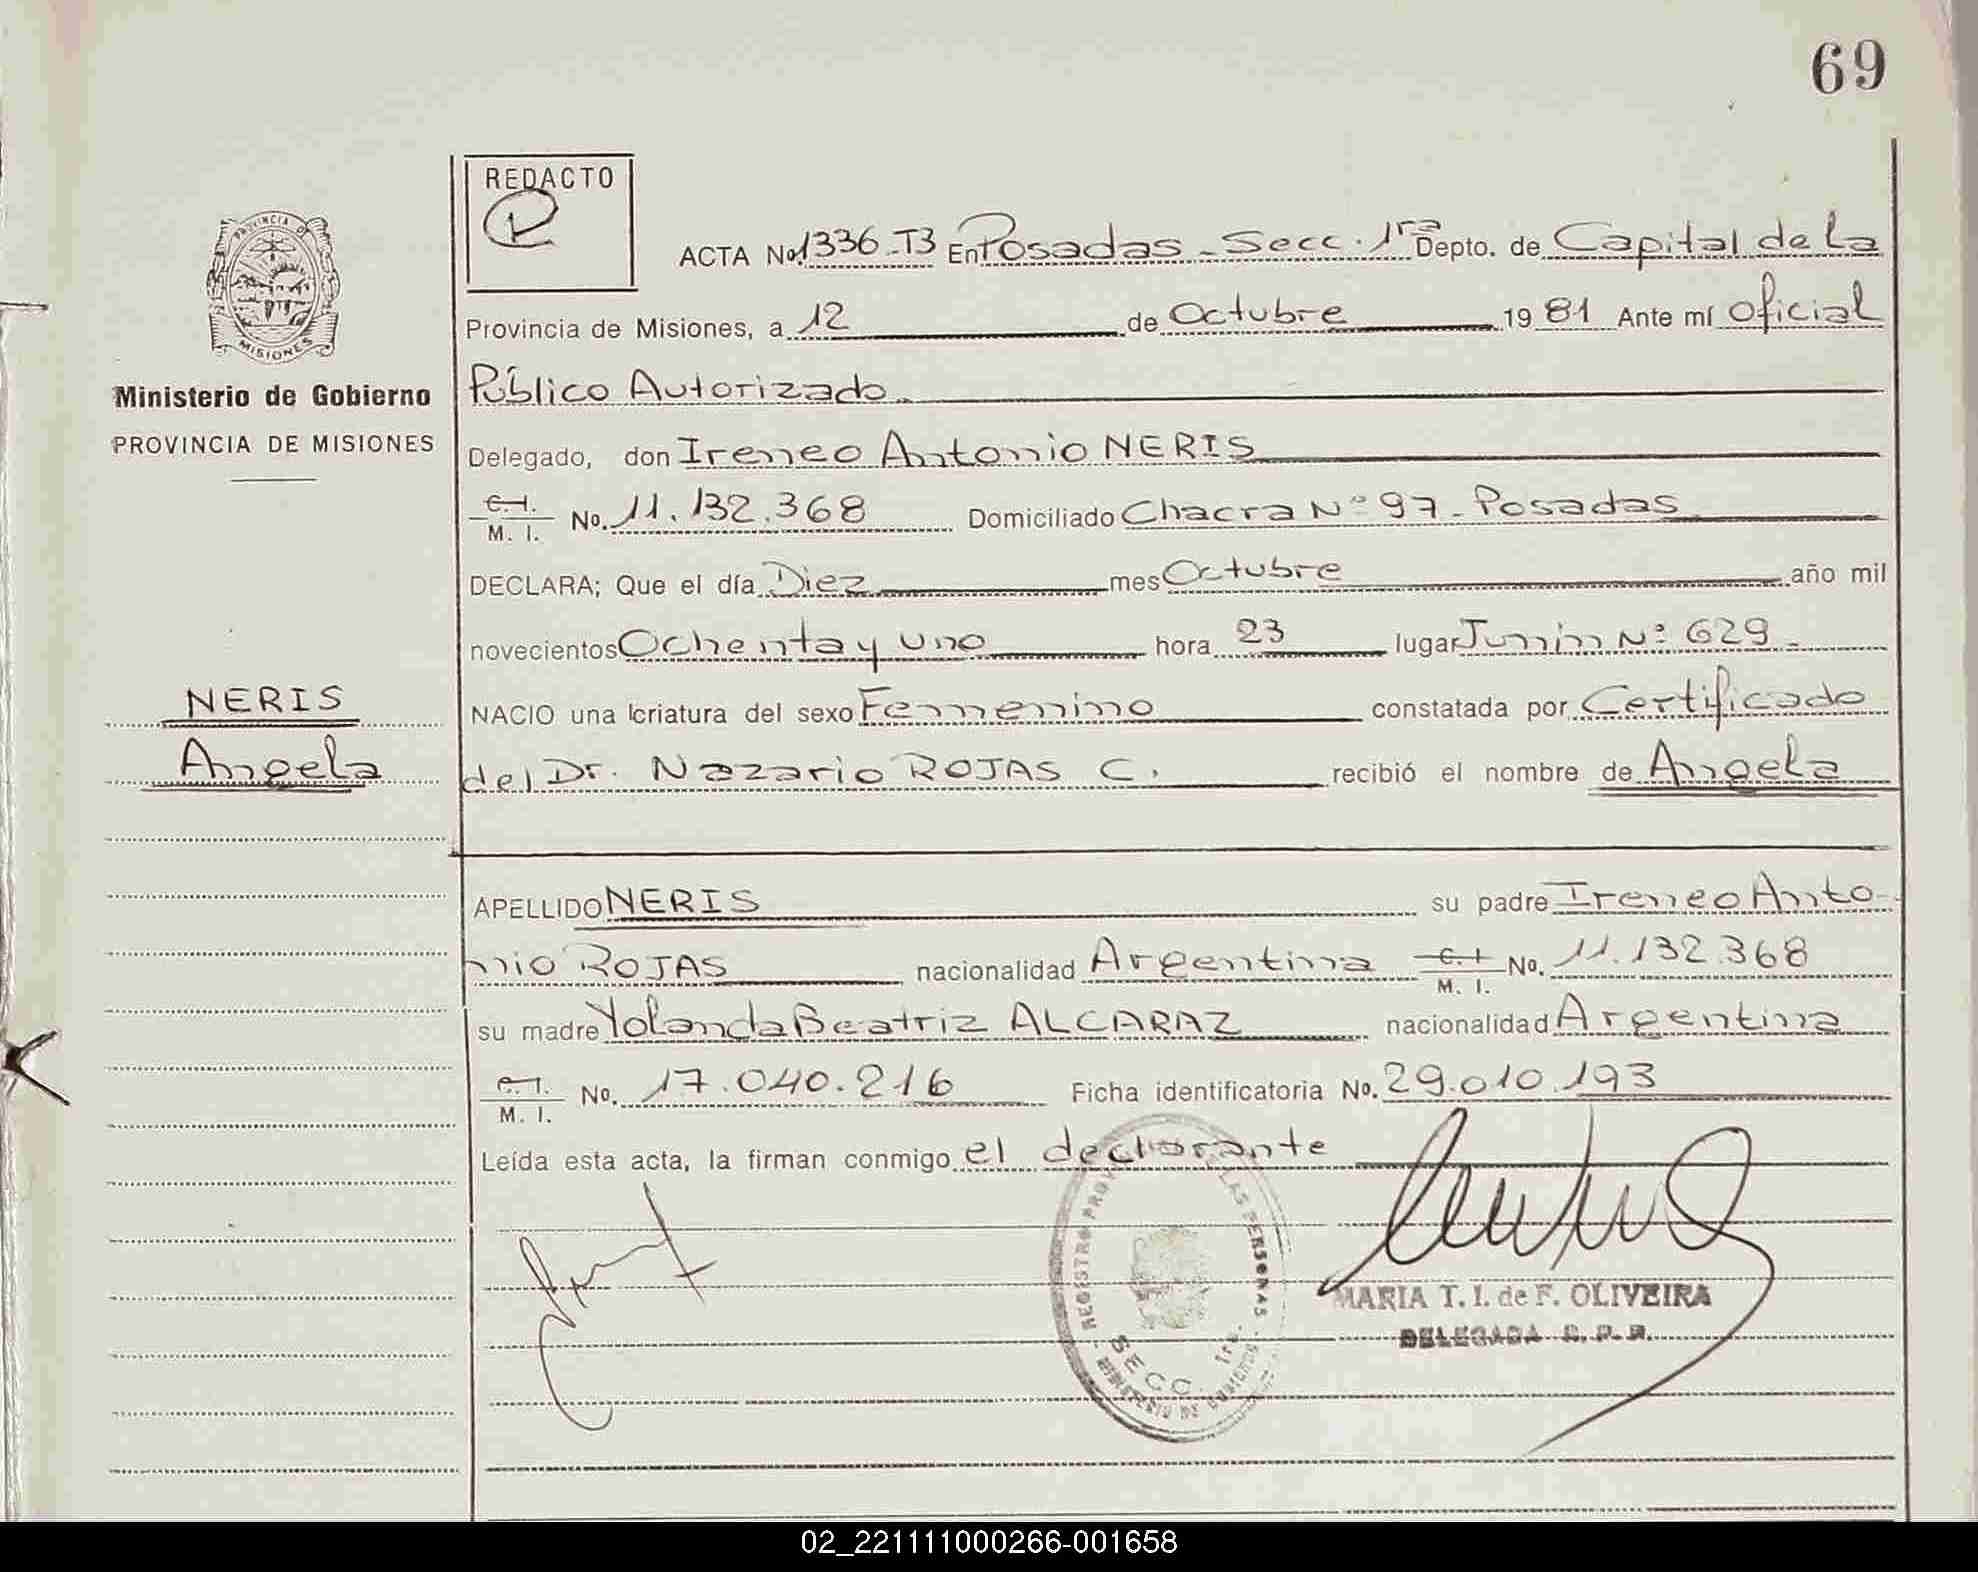 69
REDACTO
PROVINCIA DE
MISIONES
ACTA No. 1336-T3 En Posadas - Secc. 1ra Depto. de Capital de la
Provincia de Misiones, a 12 de Octubre 1981 Ante mí Oficial
Ministerio de Gobierno
Público Autorizado
PROVINCIA DE MISIONES
Delegado, don Ireneo Antonio NERIS
C.I.
M. I. No. 11.132.368 Domiciliado Chacra Nº 97 - Posadas
DECLARA; Que el día Diez mes Octubre año mil
novecientos Ochenta y uno hora 23 lugar Junín Nº 629 -
NERIS
NACIO una criatura del sexo Femenino constatada por Certificado
Angela
del Dr. Nazario ROJAS C. recibió el nombre de Angela
APELLIDO NERIS su padre Ireneo Anto-
nio ROJAS nacionalidad Argentina C.I. M. I. No. 11.132.368
su madre Yolanda Beatriz ALCARAZ nacionalidad Argentina
C.I. M. I. No. 17.040.216 Ficha identificatoria No. 29.010.193
Leída esta acta, la firman conmigo el declarante
REGISTRO PROV LAS PERSONAS
SECC. 1ra.
MINISTERIO DE GOBIERNO
MARIA T. I. de F. OLIVEIRA
DELEGADA R. P. P.
02_221111000266-001658